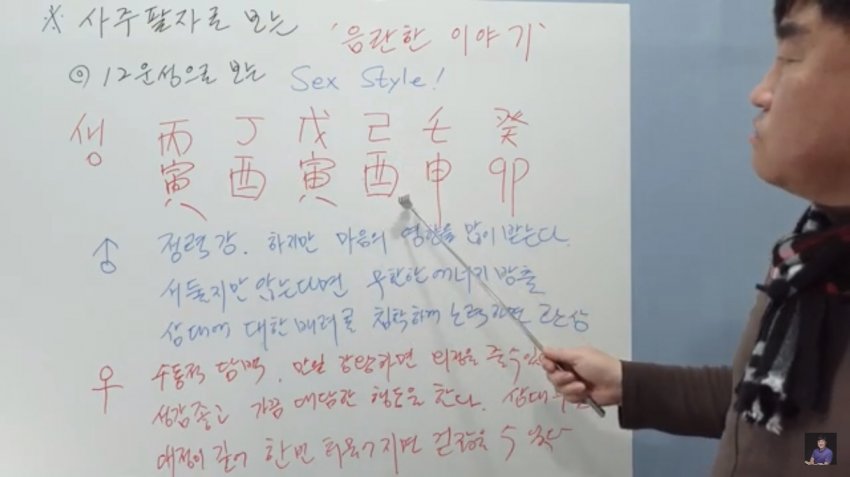 ※ 사주팔자로 보는 '음란한 이야기'
◎ 12운성으로 보는 Sex Style!
생 丙 丁 戊 己 壬 癸
寅 酉 寅 酉 申 卯
♂ 정력 강. 하지만 마음의 영향을 많이 받는다.
서둘지만 않는다면 무한한 에너지 방출
상대에 대한 배려를 침착하게 노력하면
우 수동적 담백. 만일 강탈하면 줄 수
성감 좋고 가끔 대담한 행동을 한다. 상대
애정이 깊어 한번 지면 걷잡을 수 없다